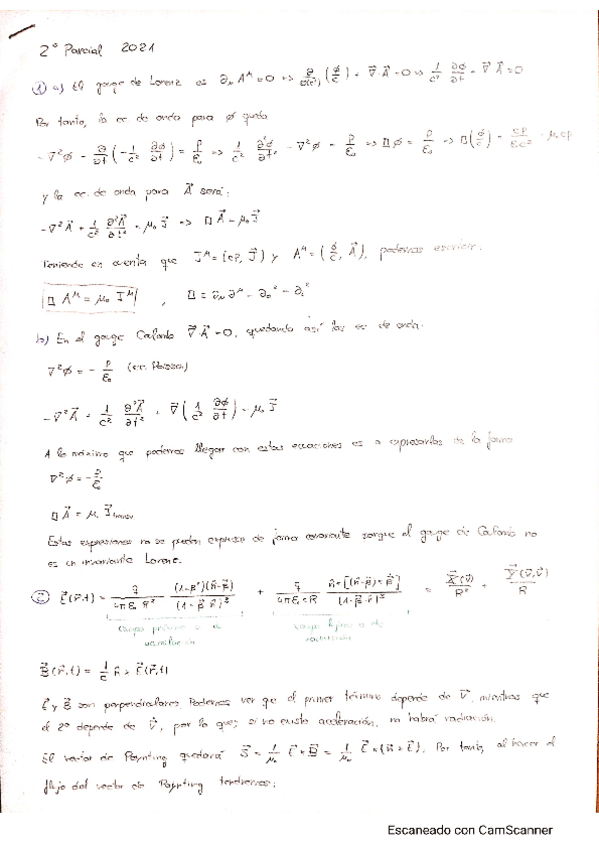 2º Parcial 2021
① a) El gauge de Lorenz es ∂μ A^μ = 0 => ∂/∂(ct) (ϕ/c) + ∇·A = 0 => 1/c² ∂ϕ/∂t + ∇A = 0
Por tanto, la ec de onda para ϕ queda
-∇²ϕ - ∂/∂t (-1/c² ∂ϕ/∂t) = ρ/ε₀ => 1/c² ∂²ϕ/∂t² - ∇²ϕ = ρ/ε₀ => □ϕ = ρ/ε₀ => □(ϕ/c) = cρ/ε₀c² = μ₀cρ
y la ec. de onda para A será:
-∇²A + 1/c² ∂²A/∂t² = μ₀ J => □A = μ₀ J
Teniendo en cuenta que J^μ = (cρ, J) y A^μ = (ϕ/c, A), podemos escribir:
□ A^μ = μ₀ J^μ , □ = ∂μ ∂^μ = ∂₀² - ∂ᵢ²
b) En el gauge Culombio ∇·A = 0, quedando así las ec de onda:
∇²ϕ = - ρ/ε₀ (ec. Poisson)
-∇²A + 1/c² ∂²A/∂t² + ∇(1/c² ∂ϕ/∂t) = μ₀ J
A lo máximo que podemos llegar con estas ecuaciones es a expresarlas de la forma
∇²ϕ = - ρ/ε₀
□ A = μ₀ J
Estas expresiones no se pueden expresar de forma covariante porque el gauge de Culombio no
es un invariante Lorenz.
② E(r,t) = q/4πε₀R² (1-β²)(n-β)/(1-β·n)³ + q/4πε₀cR n×[(n-β)×β]/(1-β·n)³ = X(v)/R² + Y(v,v)/R
Campo próximo o de
Campo lejano o de
radiación
B(r,t) = 1/c n × E(r,t)
E y B son perpendiculares. Podemos ver que el primer término depende de v, mientras que
el 2º depende de v, por lo que, si no existe aceleración, no habrá radiación.
El vector de Poynting quedará S = 1/μ₀ E × B = 1/μ₀ E × (n × E). Por tanto, al hacer el
flujo del vector de Poynting tendremos:
Escaneado con CamScanner